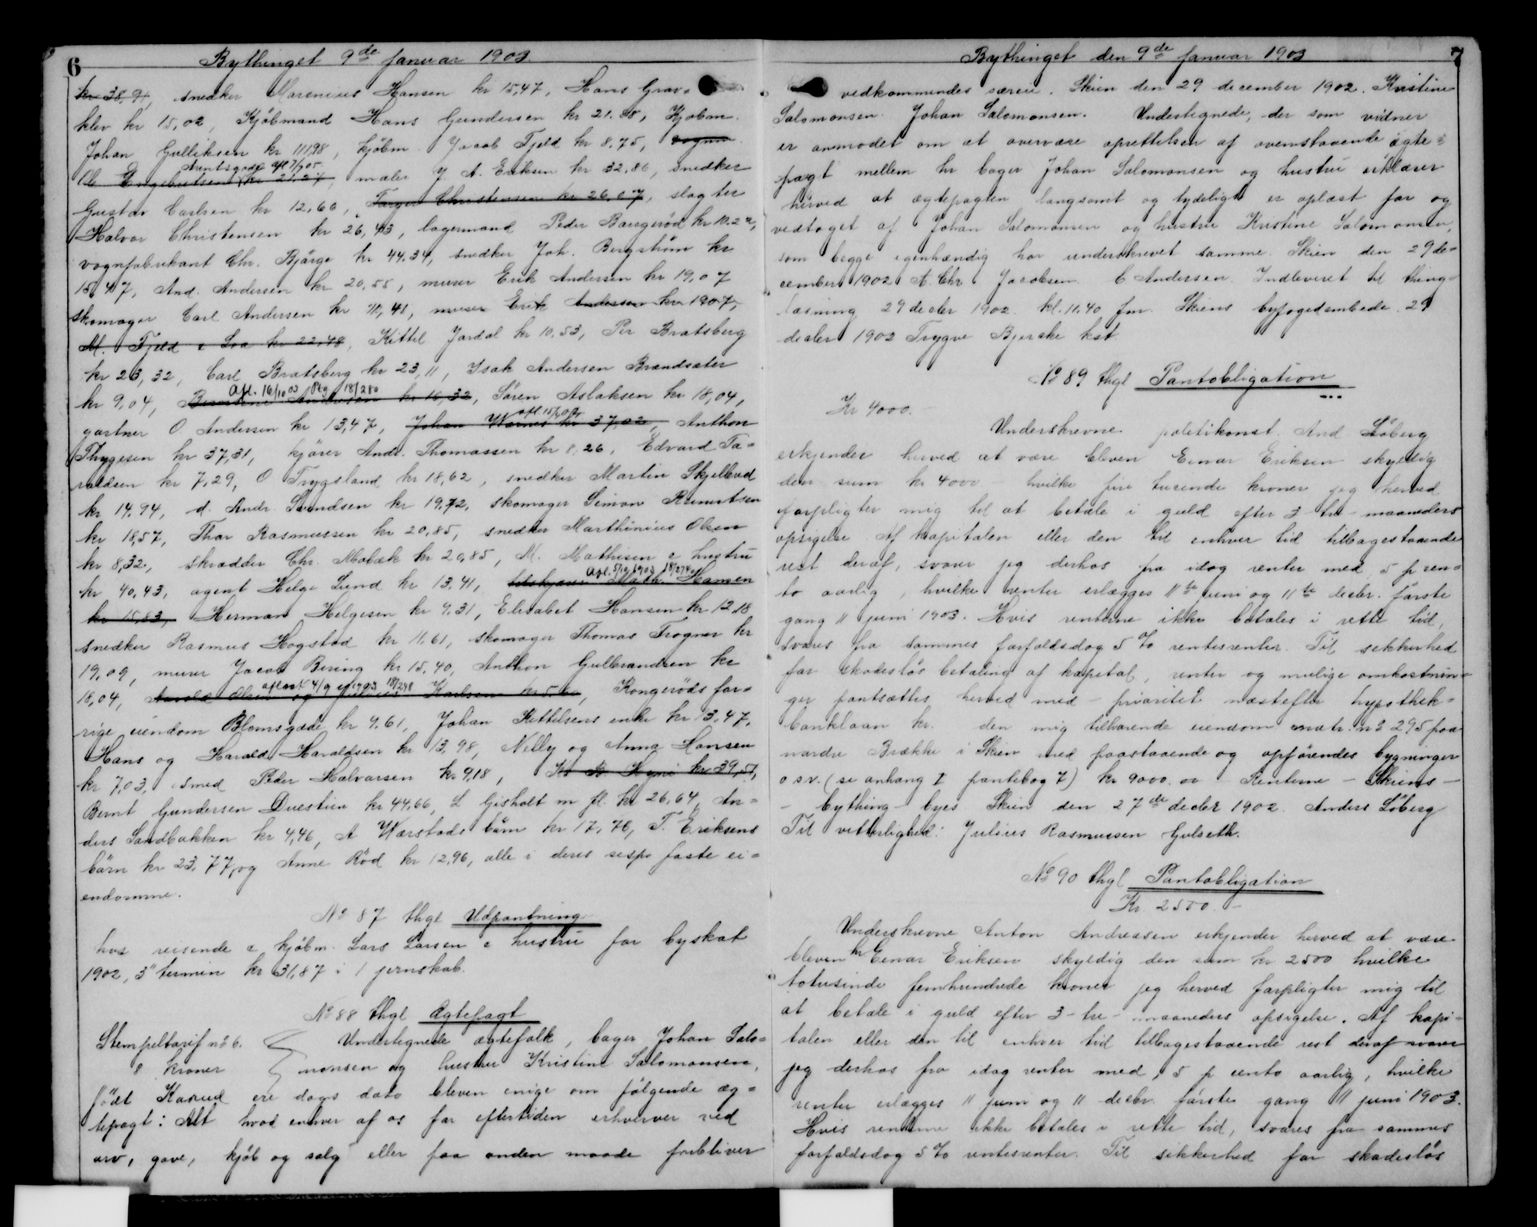 6
Bythinget 9de Januar 1903
kr 38,91, snedker Marenius Hansen kr 15,47, Hans Grav=
klev kr 15,02, Kjöbmand Hans Gundersen kr 21.88, Kjöbm.
Johan Gulliksen kr 111,98, kjöbm. Jacob Fjeld kr 8,75, vognm.
maler J A. Eriksen kr 32,86, snedker
Gustav Carlsen kr 12,60, Torger Christensen kr 26,07, slagter
Halvor Christensen kr 26,43, lagermand Peder Baugeröd kr 10.22,
vognfabrikant Chr. Bjärge kr 44.34, snedker Joh. Bergström kr
15,47, And. Andersen kr 20,55, murer Erik Andersen kr 19,07
skomager Carl Andersen kr 11,41, murer Erik Andersen kr 1907,
M. Fjeld e Lia kr 22,48, Kittil Jardal kr 10,53, Per Bratsberg
kr 23,32, Carl Bratsberg kr 23,11, Isak Andersen Brandsäter
Afl. 16/10 03 Ptg 18/280
kr 9,04, kr 16,32, Sören Aslaksen kr 18,04,
gartner O Andersen kr 13,47, Johan Warnes kr 37,02, Anthon
Thygesen kr 37,31, kjörer Andr. Thomassen kr 8,26, Edvard Ta=
raldsen kr 7,29, O Trygsland kr 18,62, snedker Martin Skjelbred
kr 14,94, d. Andr. Svendsen kr 19,72, skomager Simon Knudtsen
kr 18,57, Thor Rasmussen kr 20,85, snedker Marthinius Olsen
kr 8,32, skrädder Chr. Mobæk kr 20,85, M. Mathisen e hustru
kr 40,43, agent Helge Lund kr 13,41, Math. Hansen
kr 15,63, Herman Helgesen kr 9,31, Elisabet Hansen kr 12,18
snedker Rasmus Hogstad kr 11,61, skomager Thomas Trogner kr
19,09, murer Jacob Bering kr 15,40, Anthon Gulbrandsen kr
18,04, Karlsen kr 5,60, Kongeröds for=
rige eiendom Blomsgade kr 9.61, Johan Kittilsens enke kr 13,47,
Hans og Harald Haraldsen kr 13,98, Nelly og Anna Hansen
kr 7,03, smed Peder Halvorsen kr 9,18, kr 39,51,
Bernt Gundersen Duestien kr 44,66, L Gisholt m fl. kr 26,64, An=
ders Sandbakken kr 4,46, A Wærstads bårn kr 17,76, T. Eriksens
bårn kr 23,77, og Anne Röd kr 12,96, alle i deres resp. faste ei=
endomme.
No 87 thgl Udpantning
hos reisende e kjöbm. Lars Larsen e hustru for byskat
1902, 3' termin kr 31,87 i 1 jernskab.
No 88 thgl Ægtepagt
Stempeltarif no 6. Undertegnede ægtefolk, bager Johan Salo=
8 kroner monsen og hustru Kristine Salomonsen,
födt Kaasud ere dags dato bleven enige om fölgende æg=
tepagt: Alt hvad enhver af os for eftertiden erhverver ved
arv, gave, kjöb og salg eller paa anden maade forbliver
7
Bythinget den 9de Januar 1903
vedkommendes særeie. Skien den 29 december 1902. Kristine
Salomonsen. Johan Salomonsen. Undertegnede, der som vidner
er anmodet om at overvære oprettelsen af ovenstaaende ægte=
pagt mellem hr bager Johan Salomonsen og hustru erklærer
herved at ægtepagten langsomt og tydeligt er oplæst for og
vedtaget af Johan Salomonsen og hustru Kristine Salomonsen,
som begge egenhændig har underskrevet samme. Skien den 29 de=
cember 1902 A. Chr. Jacobsen. C Andersen. Indleveret til thing=
læsning 29 decbr 1902 kl. 11.40 fm. Skiens byfogedembede 29
decbr 1902 Trygve Bjerske kst
No 89 thgl Pantobligation
Kr 4000.-
Underskrevne politikonst. And. Löberg
erkjender herved at være bleven Einar Eriksen skyldig
den sum kr 4000 - hvilke fire tusende kroner jeg herved
forpligter mig til at betale i guld efter 3 tre maaneders
opsigelse. Af kapitalen eller den til enhver tid tilbagestaaende
rest deraf, svarer jeg derhos fra idag renter med 5 p cen=
to aarlig, hvilke renter erlægges 11te juni og 11te decbr. förste
gang 11 juni 1903. Hvis renterne ikke betales i rette tid,
svares fra sammes forfaldsdag 5 % rentesrenter. Til sikkerhed
for skadeslös betaling af kapital, renter og mulige omkostnin=
ger pantsættes herved med - prioritet næstefter hypothek=
banklaan kr. den mig tilhörende eiendom matr. no 295 paa
nordre Brække i Skien med paastaaende og opförendes bygninger
o.s.v. (se anhang I pantebog 7) kr 9000.00 - Renterne - Skiens -
- bything - byes Skien den 27de decbr 1902. Anders Löberg
Til vitterlighed: Julius Rasmussen Gulseth.
No 90 thgl Pantobligation
Kr 2500.-
Underskrevne Anton Andreassen erkjender herved at være
bleven hr Einar Eriksen skyldig den sum kr 2500 hvilke
totusinde femhundrede kroner jeg herved forpligter mig til
at betale i guld efter 3 - tre - maaneders opsigelse. Af kapi=
talen eller den til enhver tid tilbagestaaende rest deraf svarer
jeg derhos fra idag renter med 5 p cento aarlig, hvilke
renter erlægges 11 juni og 11 decbr. förste gang 11 juni 1903.
Hvis renterne ikke betales i rette tid, svares fra sammes
forfaldsdag 5 % rentesrenter. Til sikkerhed for skadeslös